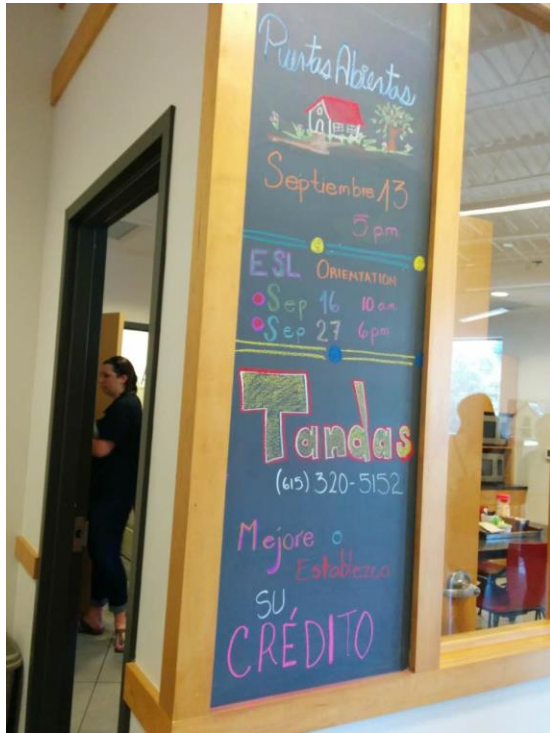 Puertas Abiertas
Septiembre 13
5 pm
ESL ORIENTATION
Sep 16 10 am
Sep 27 6 pm
Tandas
(615) 320-5152
Mejore o
Establezca
SU
CRÉDITO